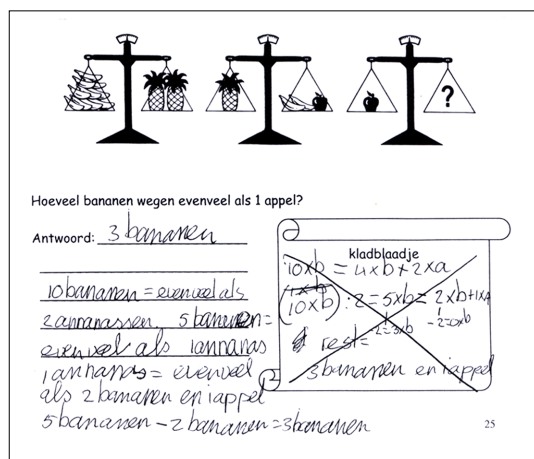 ?
Hoeveel bananen wegen evenveel als 1 appel?
Antwoord: 3 bananen
10 bananen = evenveel als
2 annanassen, 5 bananen =
evenveel als 1 annanas
1 annanas = evenveel
als 2 bananen en 1 appel
5 bananen - 2 bananen = 3 bananen
kladblaadje
10xb = 4xb + 2xa
(10xb) : 2 = 5xb = 2xb + 1xa
-2=3xb -2=0xb
rest =
3 bananen en 1 appel
25